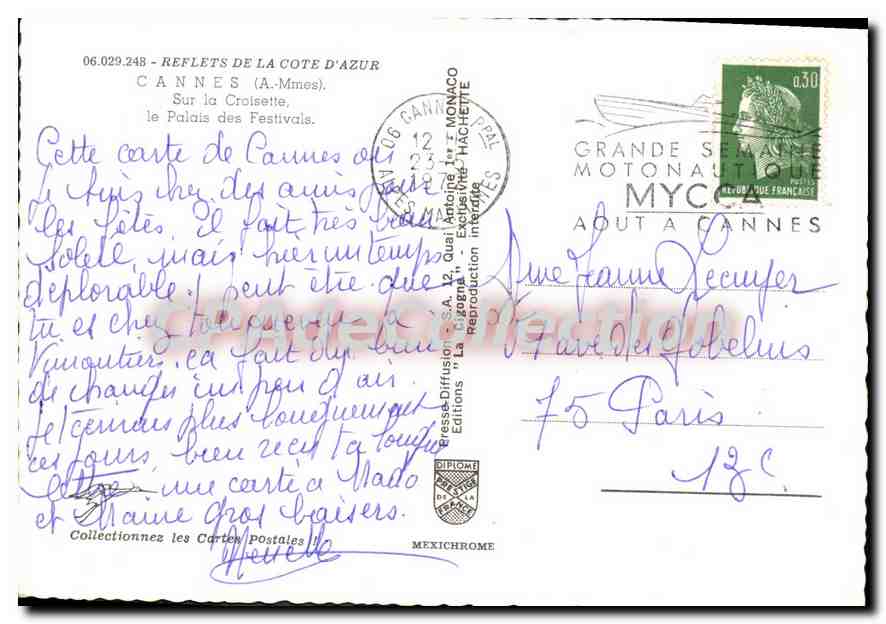 06.029.248 - REFLETS DE LA COTE D'AZUR
CANNES (A.-Mmes).
Sur la Croisette,
le Palais des Festivals.
Cette carte de Cannes où
je suis chez des amis pour
les fêtes, il fait très beau
soleil, mais hier un temps
déplorable! peut être que
tu es chez
Vimoutiers, ça fait du bien
de changer un peu d'air.
Je t'écrirais plus longuement
ces jours, bien reçu ta longue
lettre, une carte à Mado
et Marie gros baisers.
Collectionnez les Cartes Postales !
Presse-Diffusion S.A. 12, Quai Antoine 1er - MONACO
Editions "La Cigogne" - Exclusivité HACHETTE
Reproduction interdite
DIPLOME
PRESTIGE
DE LA
FRANCE
MEXICHROME
06 CANNES PPAL
12
23
ALPES MARITIMES
GRANDE SEMAINE
MOTONAUTIQUE
MYCCA
AOUT A CANNES
0,30
POSTES
REPUBLIQUE FRANÇAISE
Mme Jeanne Lecuyer
ave des Gobelins
75 Paris
13e
CPAdeCollection